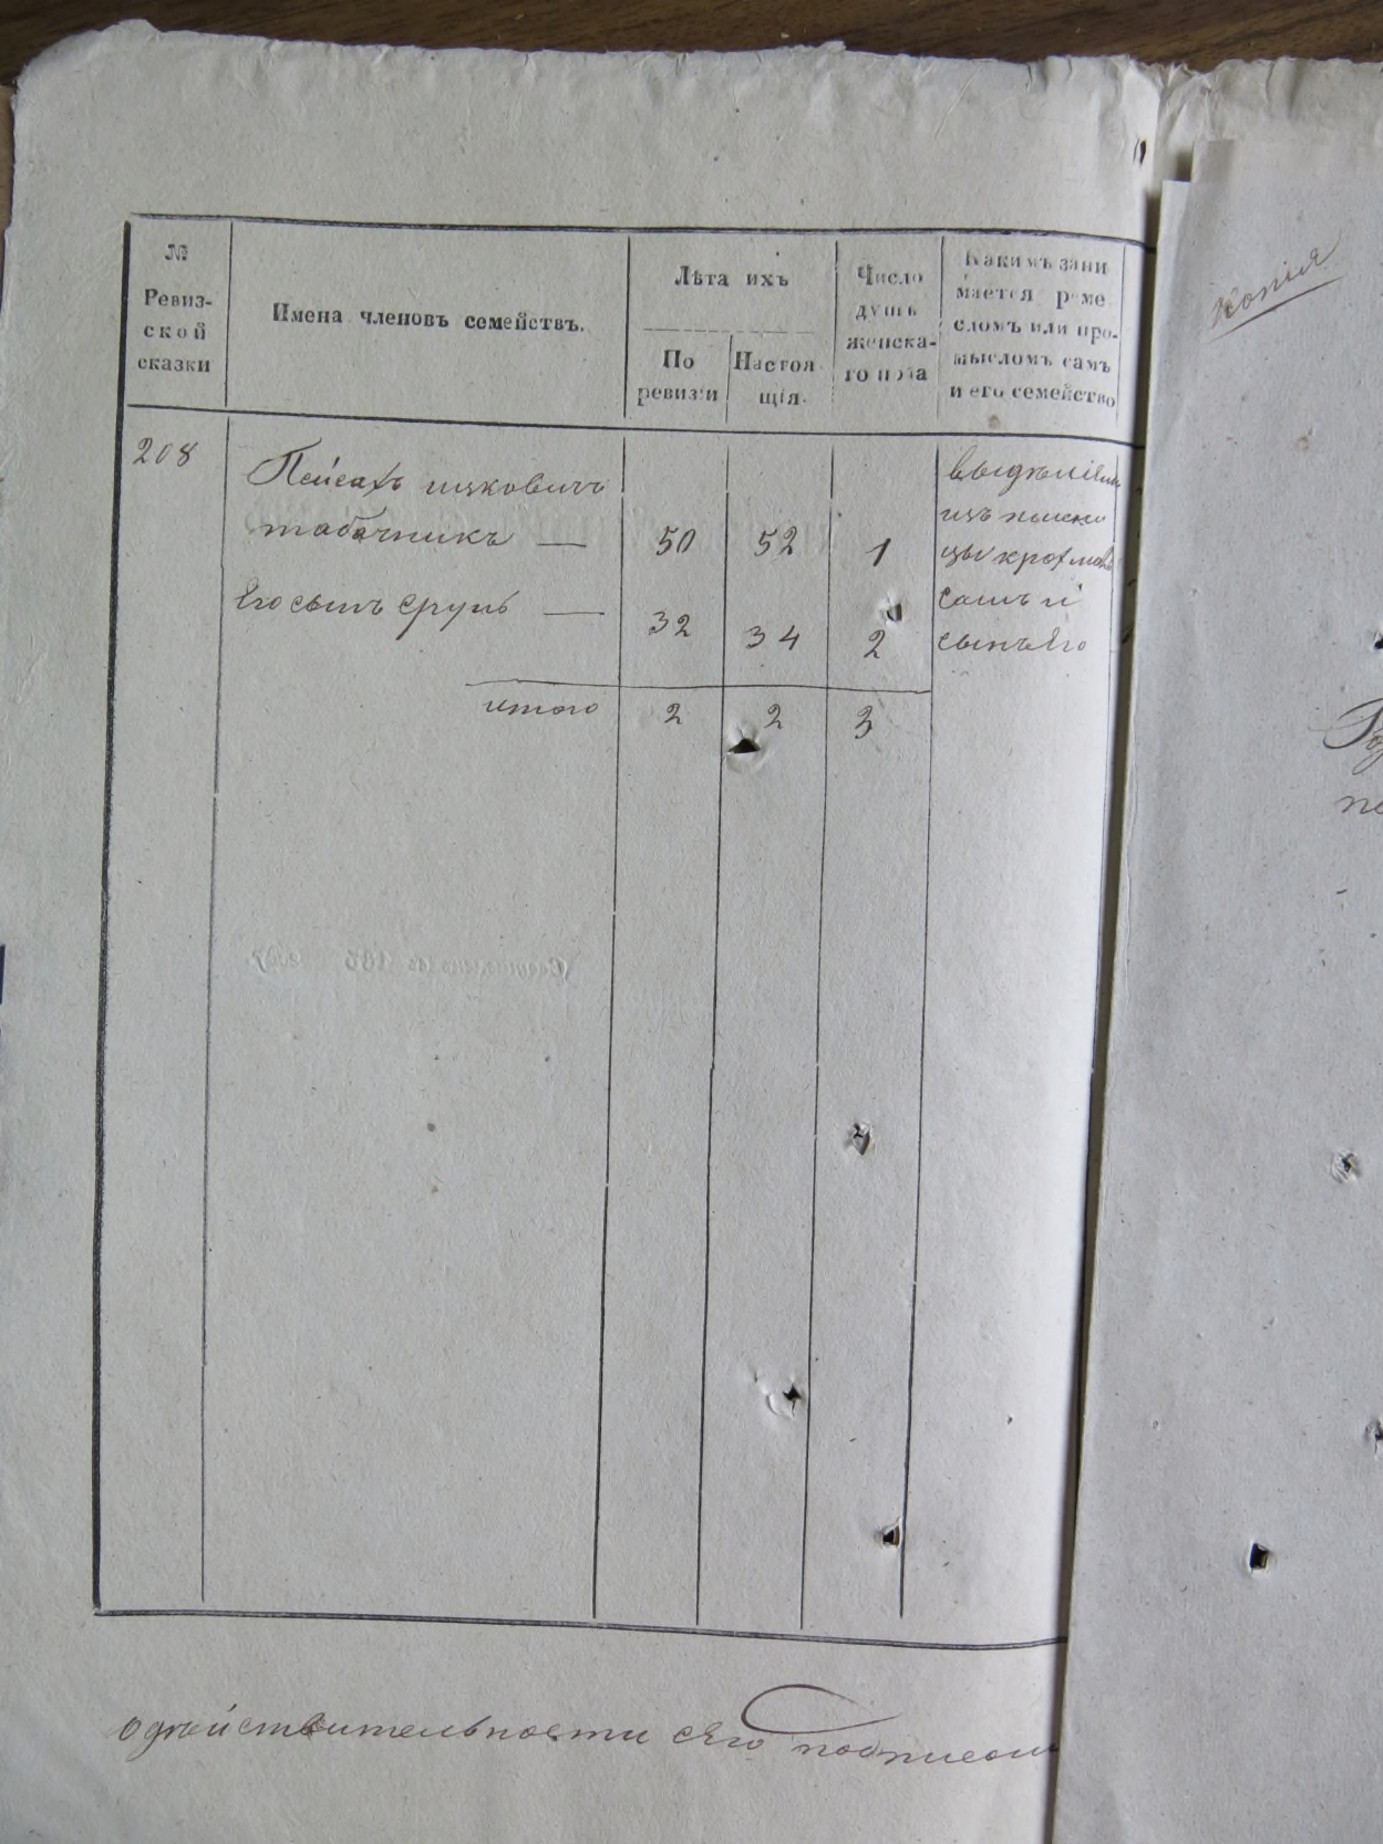 №
Ревиз-
ской
сказки
Имена членовъ семействъ.
Лѣта ихъ
По
ревизіи
Настоя
щія.
Число
душъ
женска-
го пола
Какимъ зани
мается реме
сломъ или про-
мысломъ самъ
и его семейство
208
Пейсахъ ицковичъ
табачникъ —
50
52
1
его сынъ срулъ —
32
34
2
выдѣленіемъ
изъ пшени
цы крохмала
самъ и
сынъ его
итого
2
2
3
Копія
о дѣйствительности сего подписом